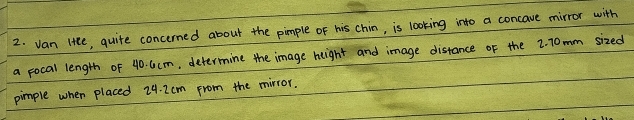 2. Van Hee, quite concerned about the pimple of his chin, is looking into a concave mirror with
a focal length of 40.6cm, determine the image height and image distance of the 2.70mm sized
pimple when placed 24.2cm from the mirror.